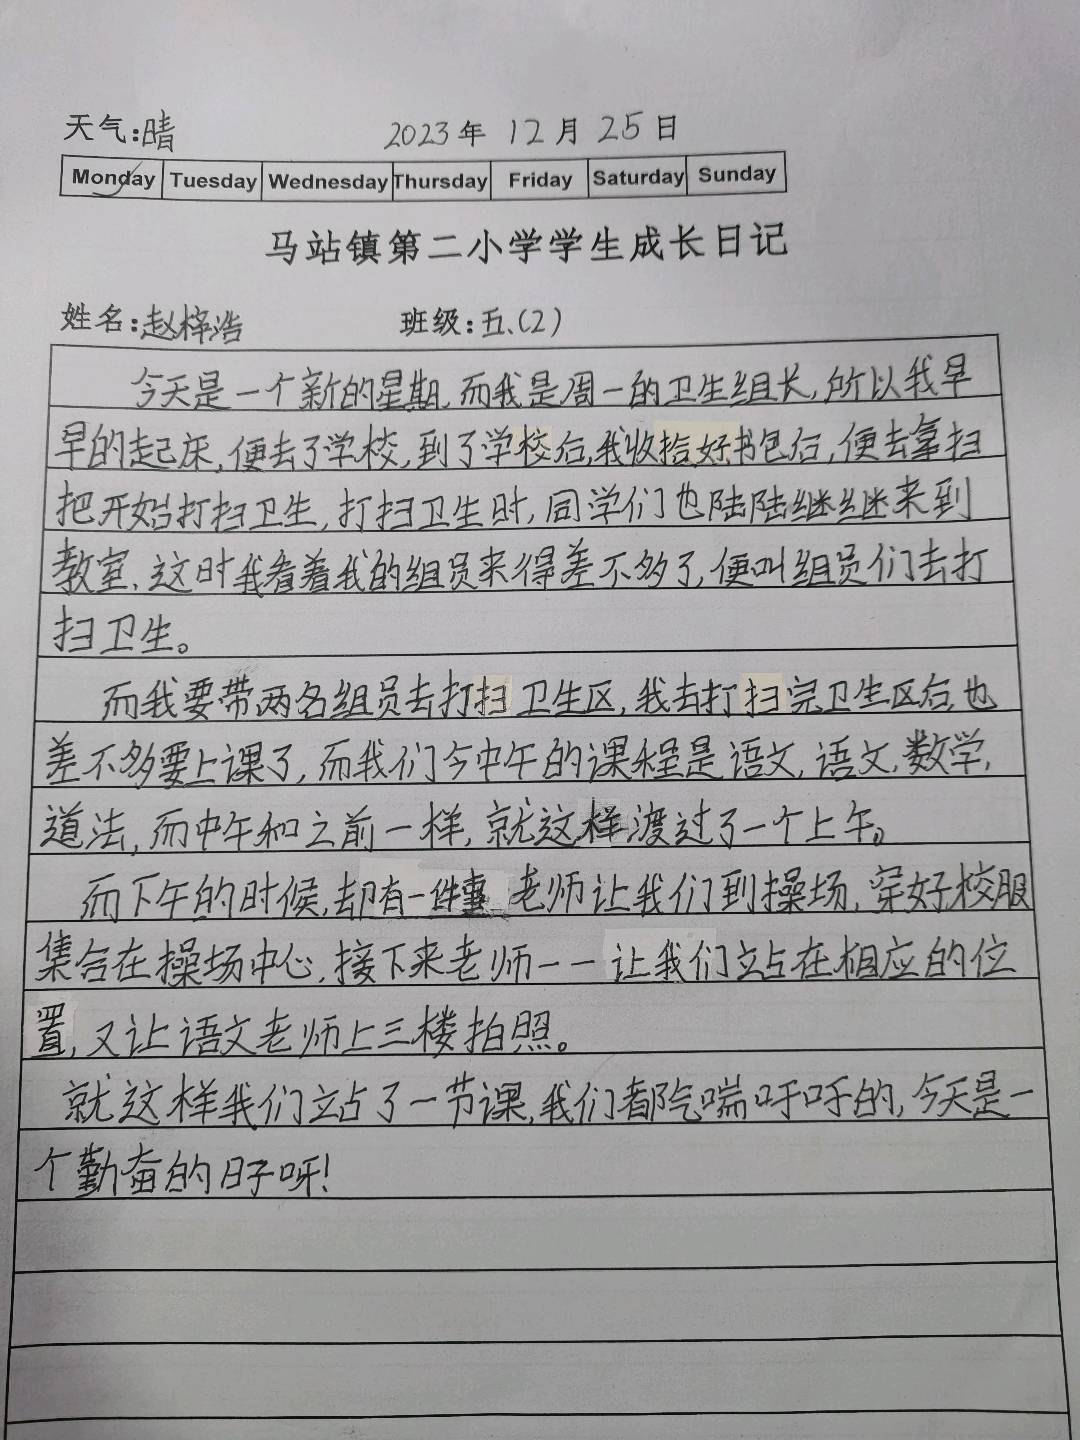 天气:晴 2023年 12月 25日
Monday Tuesday Wednesday Thursday Friday Saturday Sunday
马站镇第二小学学生成长日记
姓名:赵梓浩 班级:五.(2)
今天是一个新的星期,而我是周一的卫生组长,所以我早
早的起床,便去了学校,到了学校后,我收拾好书包后,便去拿扫
把开始打扫卫生,打扫卫生时,同学们也陆陆继继来到
教室,这时我看着我的组员来得差不多了,便叫组员们去打
扫卫生。
而我要带两名组员去打扫卫生区,我去打扫完卫生区后,也
差不多要上课了,而我们今中午的课程是语文,语文,数学,
道法,而中午和之前一样,就这样渡过了一个上午。
而下午的时候,却有一件事 老师让我们到操场,穿好校服
集合在操场中心,接下来老师一一让我们立站在相应的位
置,又让语文老师上三楼拍照。
就这样我们立站了一节课,我们都气喘吁吁的,今天是一
个勤奋的日子呀!